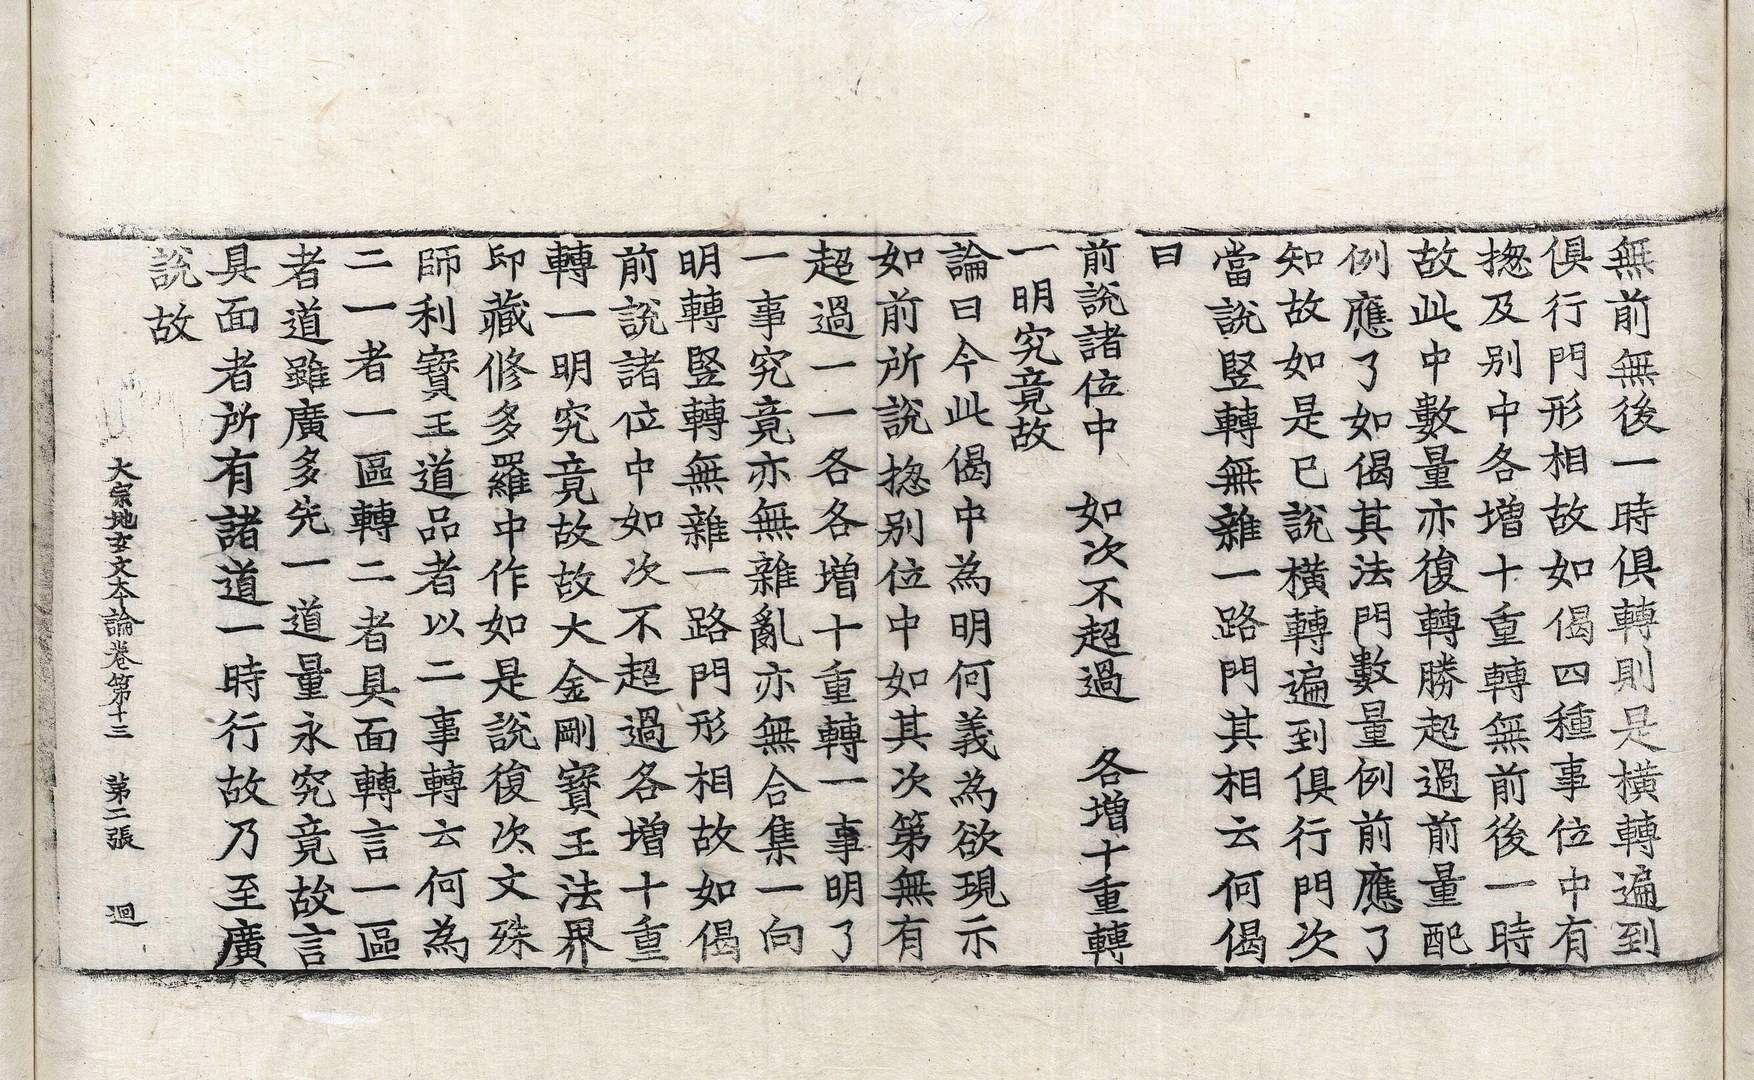 無前無後一時俱轉則是橫轉遍到
俱行門形相故如偈四種事位中有
揔及别中各增十重轉無前後一時
故此中數量亦復轉勝超過前量配
例應了如偈其法門數量例前應了
知故如是已說橫轉遍到俱行門次
當說竪轉無雜一路門其相云何偈
曰
前說諸位中　如次不超過　各增十重轉
一明究竟故
論曰今此偈中為明何義為欲現示
如前所說揔别位中如其次第無有
超過一一各各增十重轉一事明了
一事究竟亦無雜亂亦無合集一向
明轉竪轉無雜一路門形相故如偈
前說諸位中如次不超過各增十重
轉一明究竟故故大金剛寶王法界
印藏修多羅中作如是說復次文殊
師利寶王道品者以二事轉云何為
二一者一區轉二者具面轉言一區
者道雖廣多先一道量永究竟故言
具面者所有諸道一時行故乃至廣
說故
大宗地玄文本論卷第十三　第二張　迴